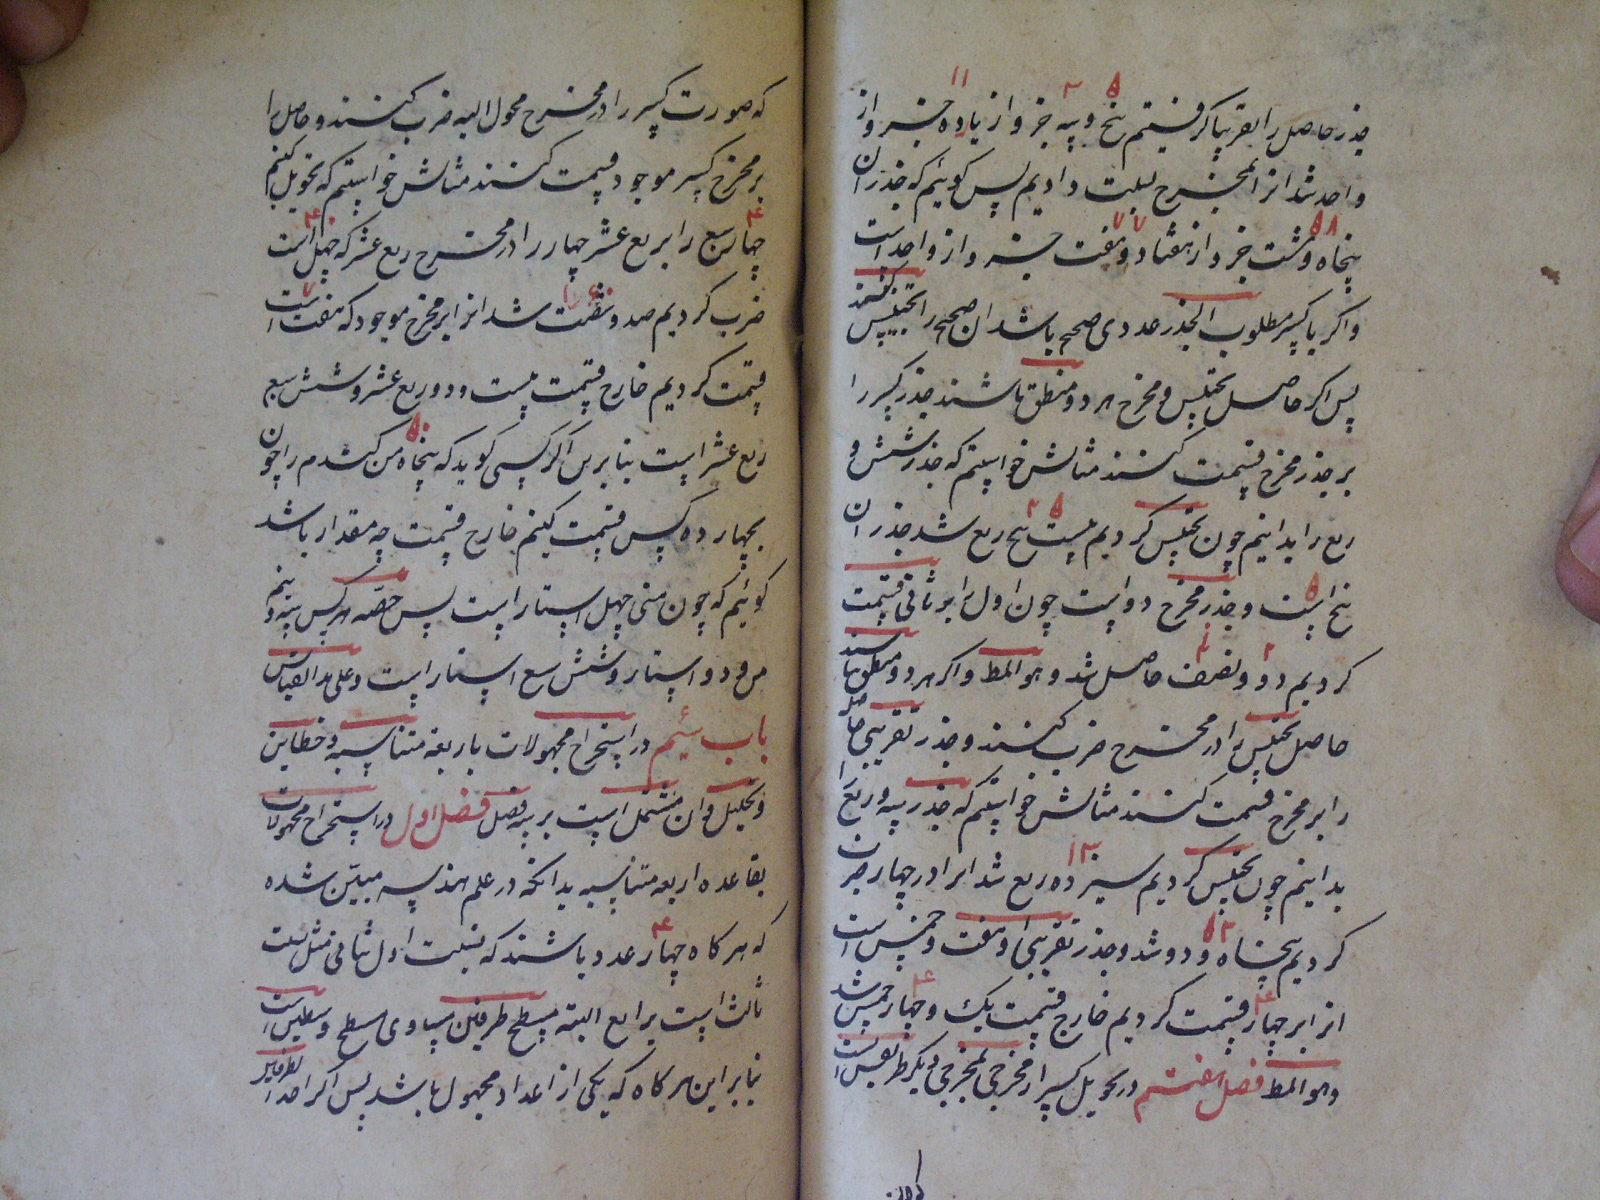 ۱۱ ۳ ۵
جذر حاصل را بتقریبا کرفتیم پنج و سه جزو از یازده جزو از
واحد شد انرا بمخرج نسبت دادیم پس کوئیم که جذر ان
۵۸ ۷۷
پنجاه و هشت جزو از هفتاد و هفت جزو از واحد است
واکر با کسر مطلوب الجذر عددی صحیح باشد ان صحیح را تجنیس کنند
پس اکر حاصل تجنیس و مخرج هر دو منطق باشند جذر کسر را
بر جذر مخرج قسمت کنند مثالش خواستیم که جذر شش و
۲۵
ربع را بدانیم چون تجنیس کردیم بیست پنج ربع شد جذر ان
۵
پنج است و جذر مخرج دو است چون اول را بر ثانی قسمت
۲
کردیم دو و نصف حاصل شد و هو المط واکر هر دو منطق نباشند
حاصل تجنیس را در مخرج ضرب کنند و جذر تقریبی حاصل
را بر مخرج قسمت کنند مثالش خواستیم که جذر سه و ربع را
۱۳
بدانیم چون تجنیس کردیم سیزده ربع شد انرا در چهار ضرب
۵۲
کردیم پنجاه و دو شد و جذر تقریبی او هفت و خمس است
۴ ۴
انرا بر چهار قسمت کردیم خارج قسمت یک و چهار خمس شد
وهو المط فصل هفتم در تحویل کسر از مخرجی بمخرجی دیکر طریقش انست
که صورت کسر را در مخرج محول الیه ضرب کنند و حاصل را
بر مخرج کسر موجود قسمت کنند مثالش خواستیم که تحویل کنیم
۴ ۴۰
چهار سبع را بربع عشر چهار را در مخرج ربع عشر که چهل است
۱۶۰ ۷
ضرب کردیم صد و شصت شد انرا بر مخرج موجود که هفت است
قسمت کردیم خارج قسمت بیست و دو ربع عشر و شش سبع
۵۰
ربع عشر است بنابرین اکر کسی کوید که پنجاه من کندم را چون
بچهارده کس قسمت کنیم خارج قسمت چه مقدار باشد
کوئیم که چون منی چهل استار است پس حصه هر کس سه و نیم
من و دو استار و شش سبع استار است وعلی هذا القیاس
باب سیم در استخراج مجهولات باربعه متناسبه و خطاین
و تحلیل و ان مشتمل است بر سه فصل فصل اول در استخراج مجهولات
بقاعده اربعه متناسبه بدانکه در علم هندسه مبین شده
۴
که هرکاه چهار عدد باشند که نسبت اول بثانی مثل نسبت
ثالث است برابع البته مسطح طرفین مساوی مسطح وسطین است
بنابراین هرکاه که یکی از اعداد مجهول باشد پس اکر احد الطرفین